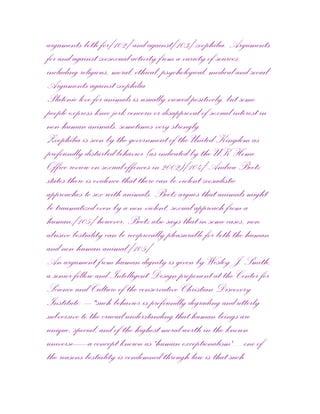 arguments both for[102] and against[103] zoophilia. Arguments
for and against zoosexual activity from a variety of sources,
including religious, moral, ethical, psychological, medical and social.
Arguments against zoophilia
Platonic love for animals is usually viewed positively, but some
people express knee jerk concern or disapproval of sexual interest in
non-human animals, sometimes very strongly.
Zoophilia is seen by the government of the United Kingdom as
profoundly disturbed behavior (as indicated by the UK Home
Office review on sexual offences in 2002)[104] Andrea Beetz
states there is evidence that there can be violent zoosadistic
approaches to sex with animals. Beetz argues that animals might
be traumatized even by a non-violent, sexual approach from a
human;[105] however, Beetz also says that in some cases, non-
abusive bestiality can be reciprocally pleasurable for both the human
and non-human animal.[105]
An argument from human dignity is given by Wesley J. Smith,
a senior fellow and Intelligent Design proponent at the Center for
Science and Culture of the conservative Christian Discovery
Institute: – "such behavior is profoundly degrading and utterly
subversive to the crucial understanding that human beings are
unique, special, and of the highest moral worth in the known
universe—a concept known as 'human exceptionalism' ... one of
the reasons bestiality is condemned through law is that such